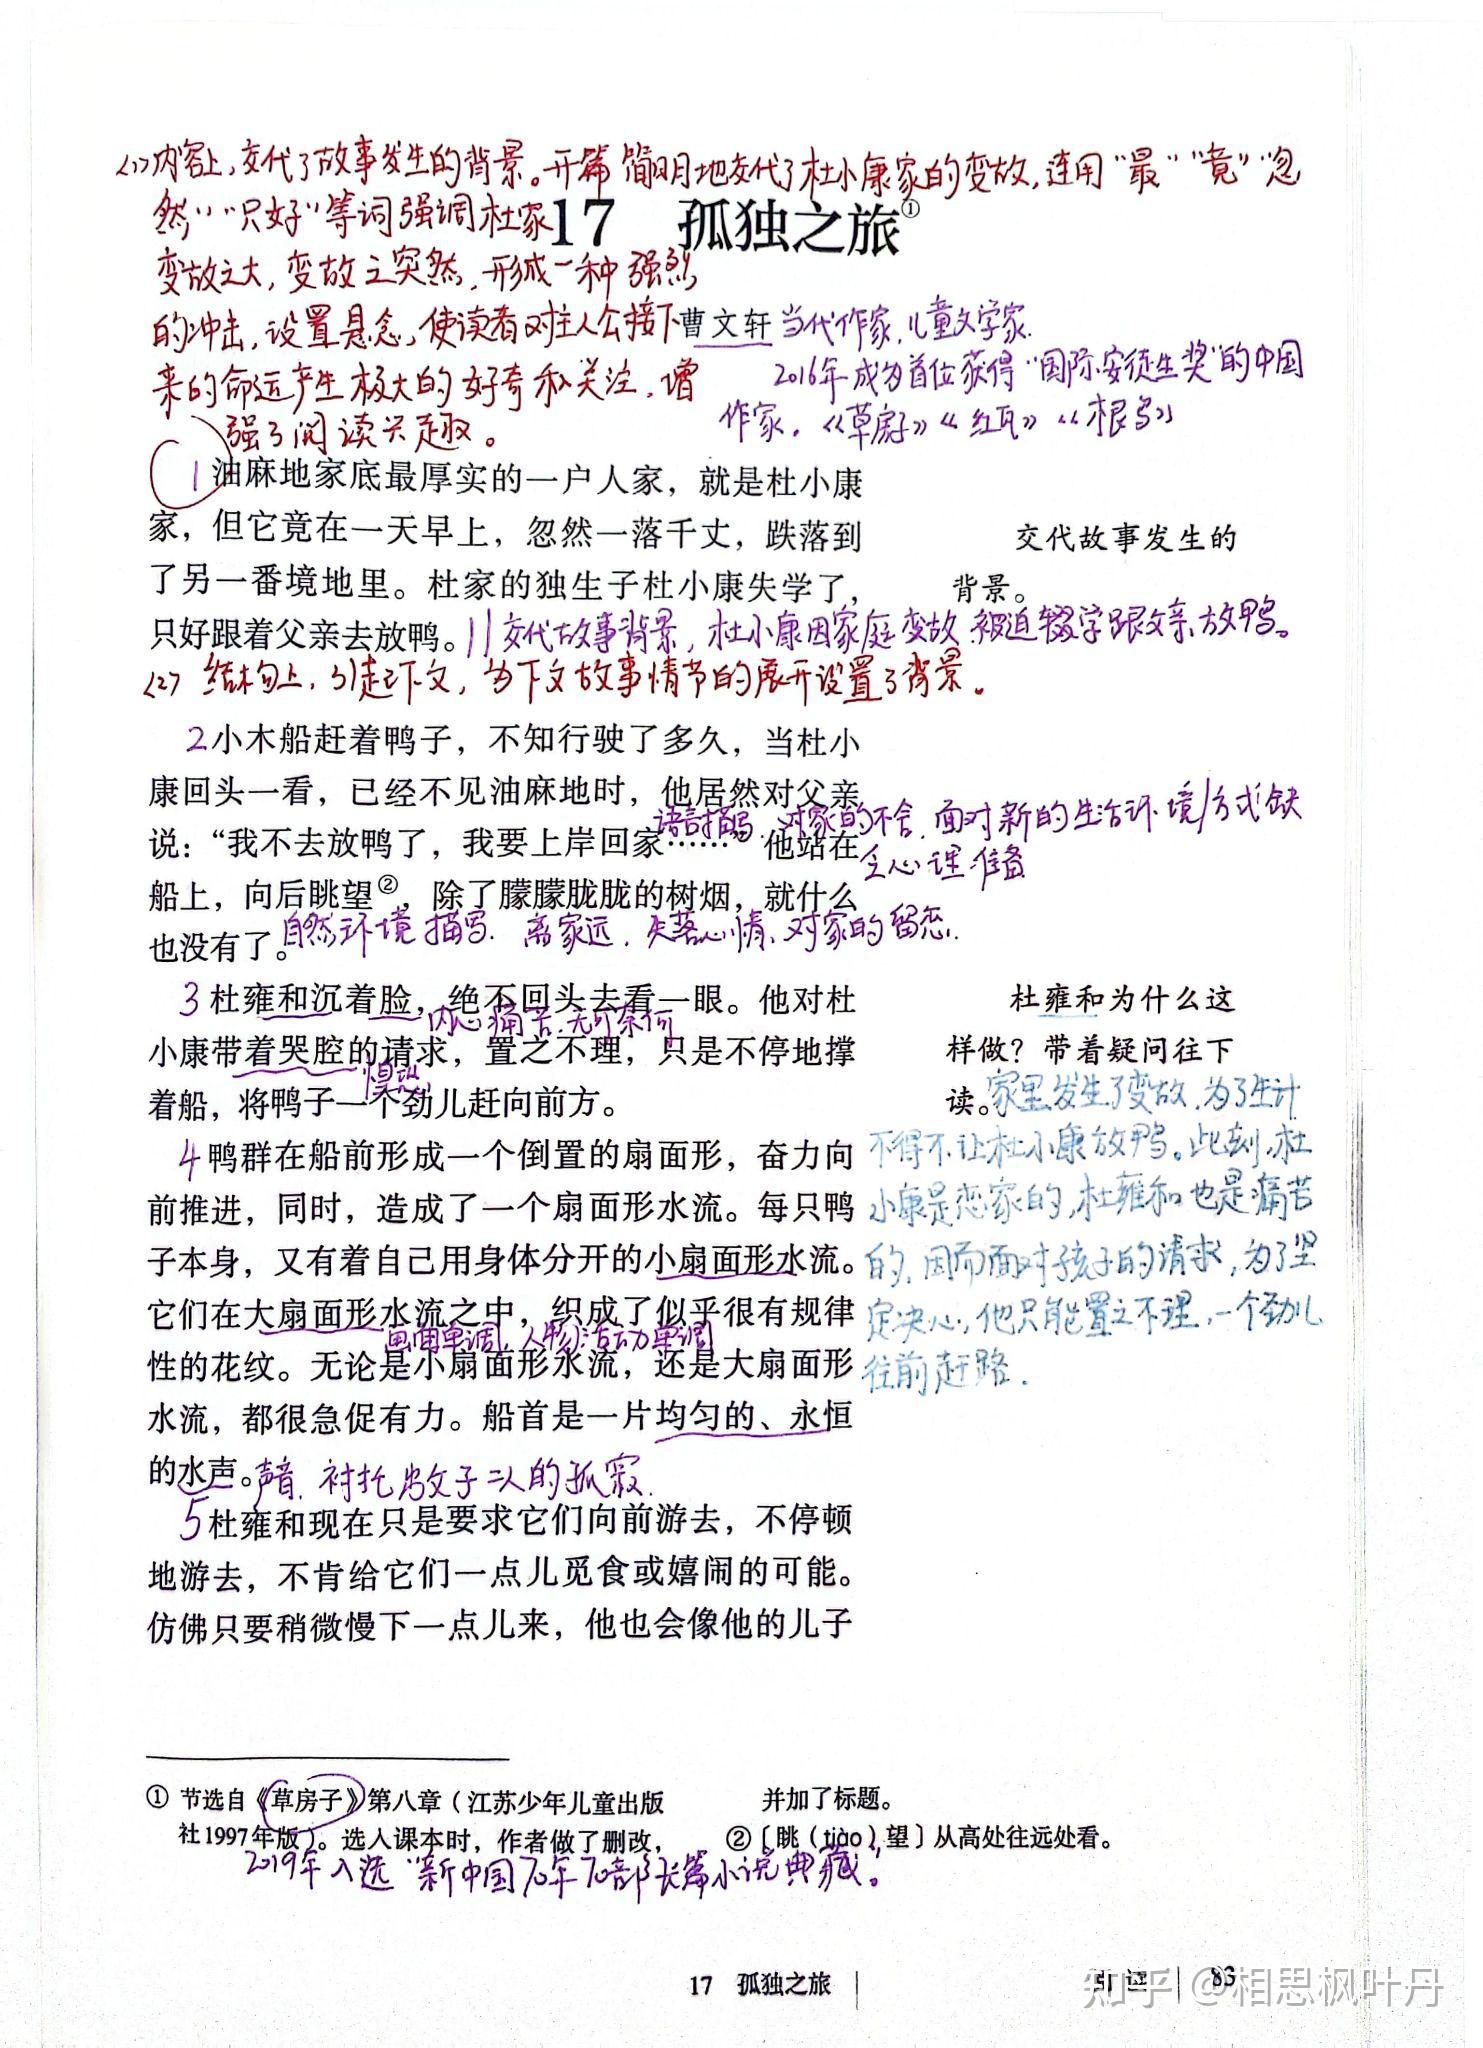 <1>内容上，交代了故事发生的背景。开篇简明地交代了杜小康家的变故，连用“最”“竟”“忽
然”“只好”等词强调杜家
17 孤独之旅①
变故之大，变故之突然，形成一种强烈
的冲击，设置悬念，使读者对主人公接下
曹文轩 当代作家，儿童文学家.
来的命运产生极大的好奇和关注，增
2016年成为首位获得“国际安徒生奖”的中国
作家.《草房子》《红瓦》《根鸟》
强了阅读兴趣。
1油麻地家底最厚实的一户人家，就是杜小康
家，但它竟在一天早上，忽然一落千丈，跌落到
了另一番境地里。杜家的独生子杜小康失学了，
只好跟着父亲去放鸭。//交代故事背景，杜小康因家庭变故被迫辍学跟父亲放鸭。
交代故事发生的
背景。
<2>结构上，引起下文，为下文故事情节的展开设置了背景。
2小木船赶着鸭子，不知行驶了多久，当杜小
康回头一看，已经不见油麻地时，他居然对父亲
语言描写，对家的不舍，面对新的生活环境/方式缺
乏心理准备
说：“我不去放鸭了，我要上岸回家……”他站在
船上，向后眺望②，除了朦朦胧胧的树烟，就什么
也没有了。自然环境描写. 离家远，失落心情、对家的留恋.
3杜雍和沉着脸，绝不回头去看一眼。他对杜
内心痛苦，无可奈何
小康带着哭腔的请求，置之不理，只是不停地撑
惶恐
着船，将鸭子一个劲儿赶向前方。
杜雍和为什么这
样做？带着疑问往下
读。家里发生了变故，为了生计
不得不让杜小康放鸭。此刻，杜
小康是恋家的，杜雍和也是痛苦
的，因而面对孩子的请求，为了坚
定决心，他只能置之不理，一个劲儿
往前赶路.
4鸭群在船前形成一个倒置的扇面形，奋力向
前推进，同时，造成了一个扇面形水流。每只鸭
子本身，又有着自己用身体分开的小扇面形水流。
它们在大扇面形水流之中，织成了似乎很有规律
画面单调，人物活动单调
性的花纹。无论是小扇面形水流，还是大扇面形
水流，都很急促有力。船首是一片均匀的、永恒
的水声。声音，衬托出父子二人的孤寂.
5杜雍和现在只是要求它们向前游去，不停顿
地游去，不肯给它们一点儿觅食或嬉闹的可能。
仿佛只要稍微慢下一点儿来，他也会像他的儿子
① 节选自《草房子》第八章（江苏少年儿童出版
社1997年版）。选入课本时，作者做了删改，
并加了标题。
②〔眺（tiào）望〕从高处往远处看。
2019年入选“新中国70年70部长篇小说典藏”
17 孤独之旅
83
知乎 @相思枫叶丹